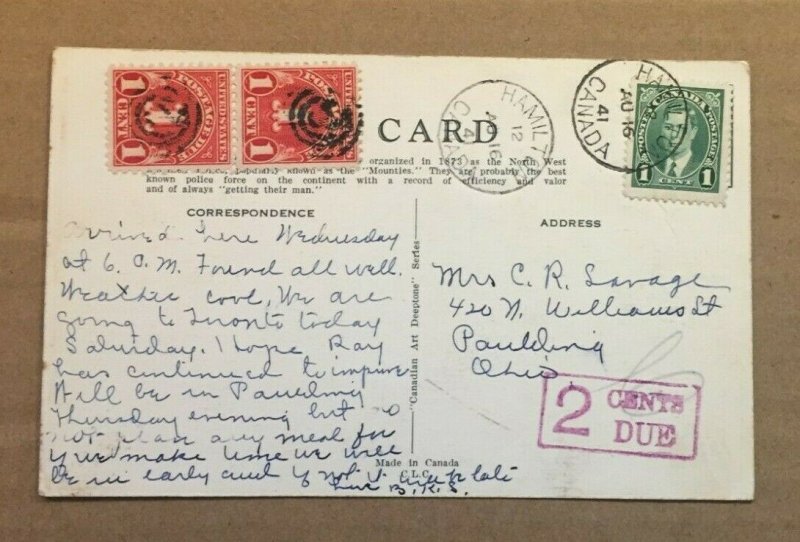 1 CENT 1
POSTAGE DUE
UNITED STATES
1 CENT 1
POSTAGE DUE
UNITED STATES
CARD
HAMILTON
12
AU 16
41
CANADA
HAMILTON
AU 16
41
CANADA
POSTES CANADA POSTAGE
1 CENT 1
organized in 1873 as the North West
known as the "Mounties." They are probably the best
known police force on the continent with a record of efficiency and valor
and of always "getting their man."
CORRESPONDENCE
Arrived here Wednesday
at 6. P.M. Found all well.
Weather cool, We are
going to Toronto today
Saturday. I hope Ray
has continued to improve
Will be in Paulding
Thursday evening but do
not plan any meal for
us make time we will
be in early and if not
late
B.R.S.
"Canadian Art Deeptone" Series
ADDRESS
Mrs C. R. Savage
420 N. Williams St
Paulding
Ohio
2 CENTS
DUE
Made in Canada
C.L.C.